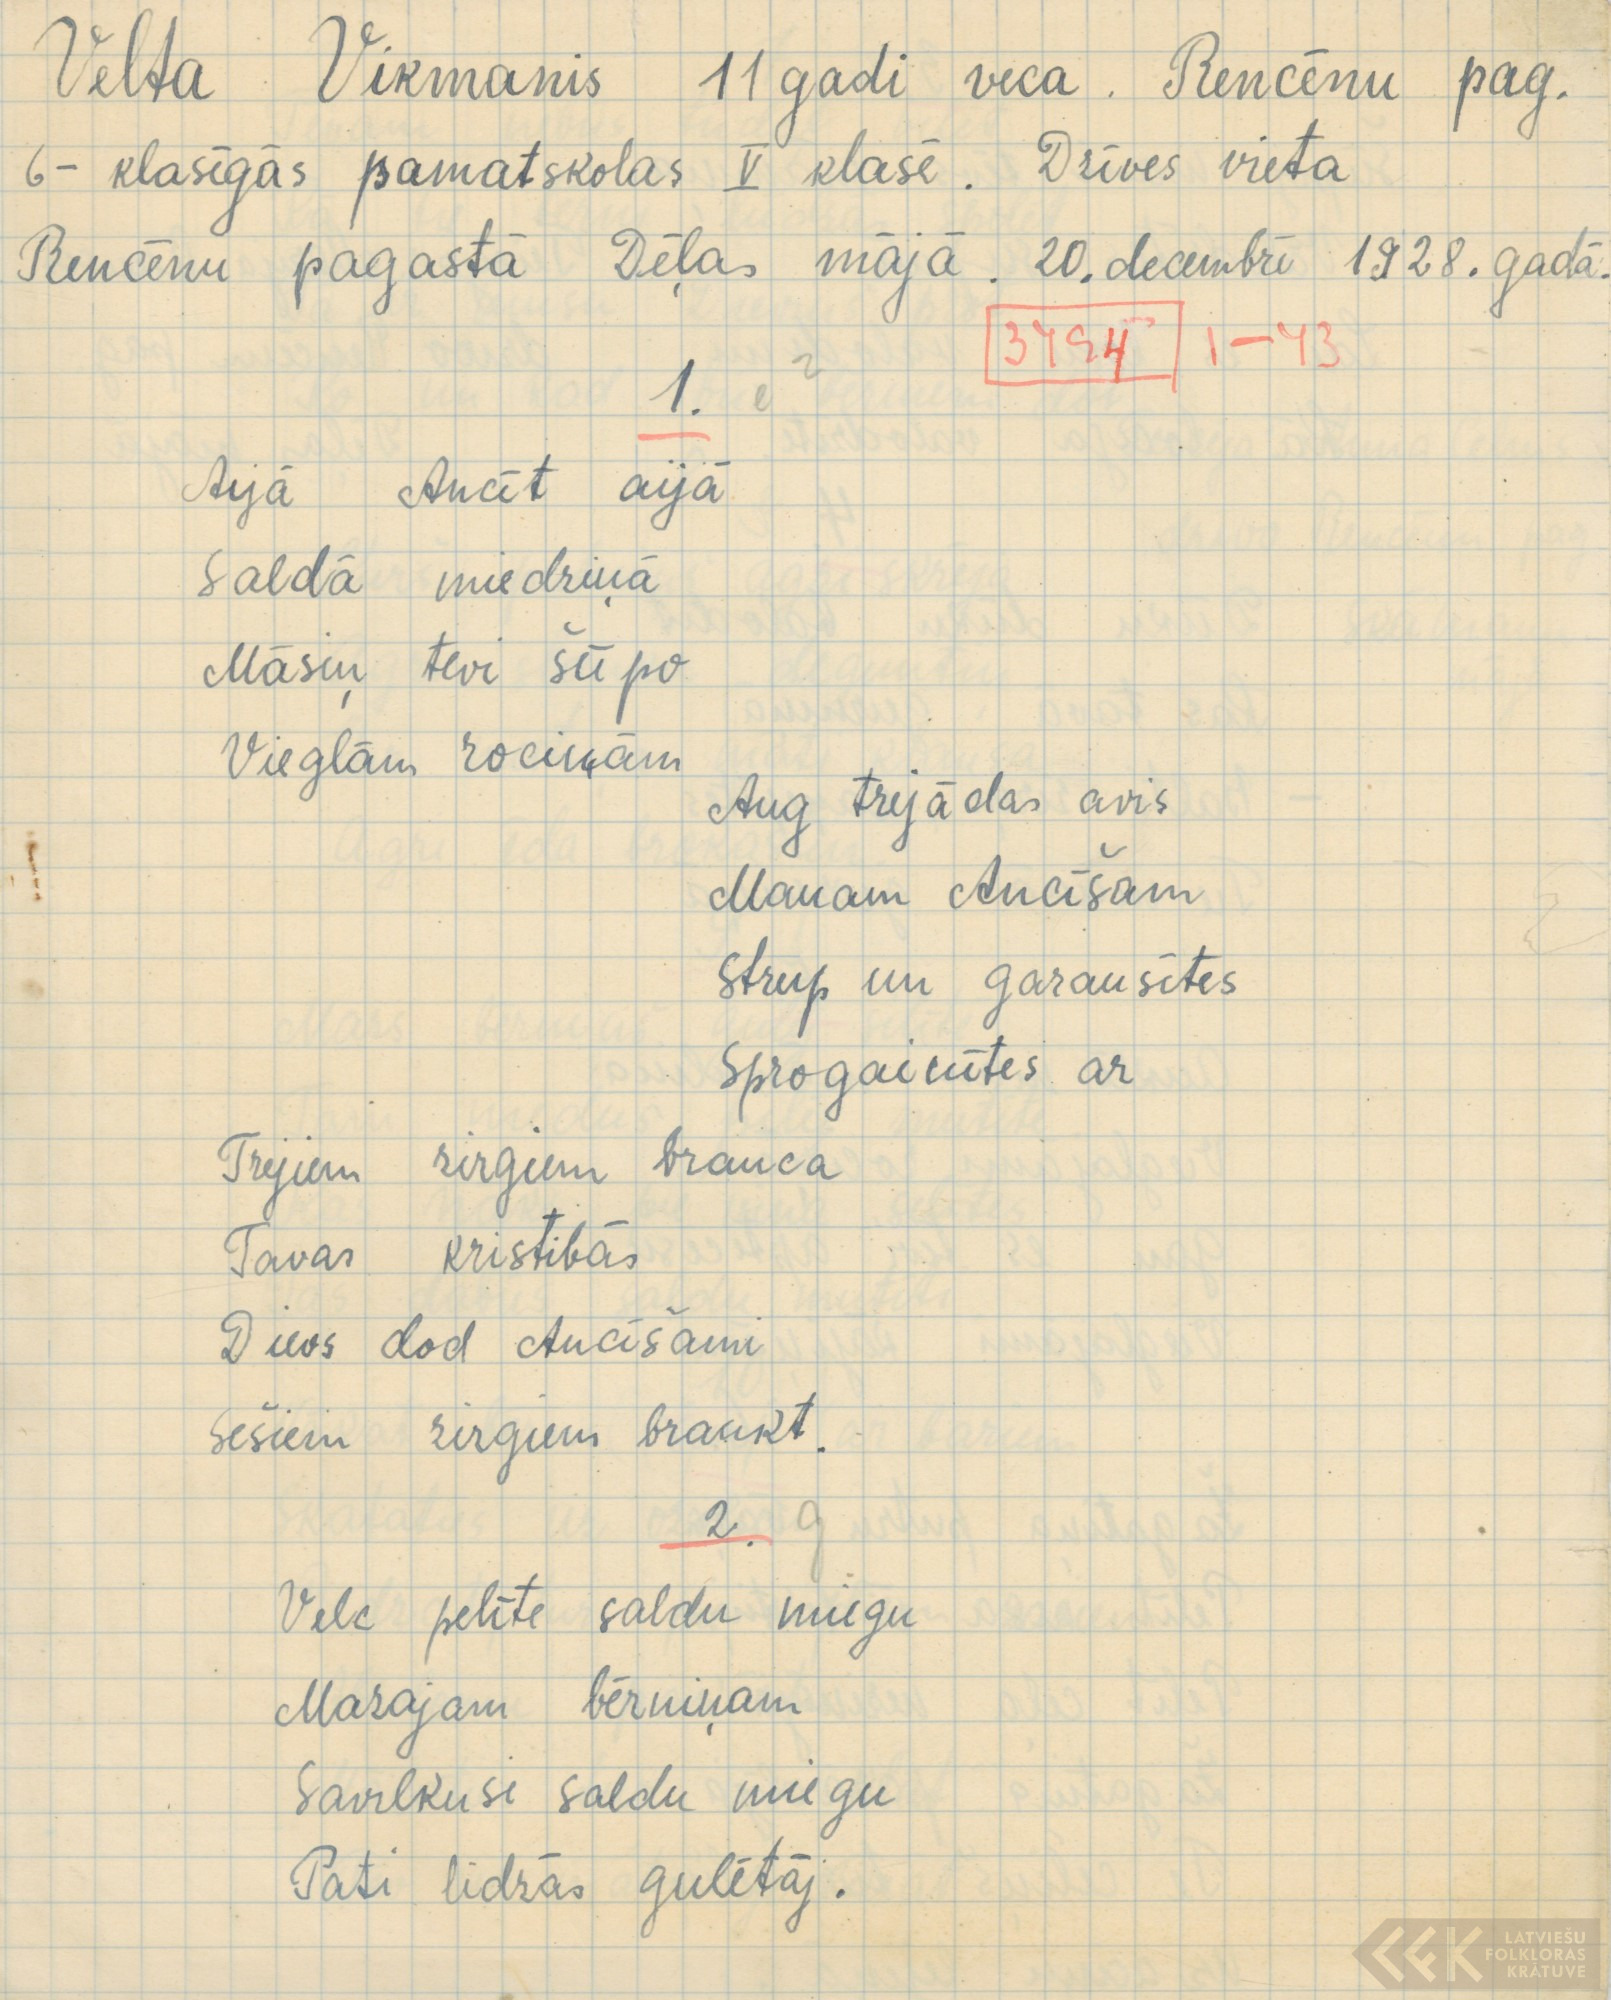 Velta Vikmanis 11 gadi veca. Rencēnu pag.
6- klasīgās pamatskolas V klasē. Dzīves vieta
Rencēnu pagastā Dēļas mājā. 20. decembrī 1928. gadā.
3494 1-43
1.
Aijā Ancīt aijā
Saldā miedziņā
Māsiņ tevi šūpo
Vieglām rociņām
Aug trejādas avis
Manam Ancīšam
Strup un garausītes
Sprogainītes ar
Trejiem zirgiem brauca
Tavas kristibās
Dievs dod Ancīšami
Sešiem zirgiem braukt.
2.
Velc pelīte saldu miegu
Mazajam bērniņam
Savelkusi saldu miegu
Pati lidzās gulētāj.
LATVIEŠU
FOLKLORAS
KRĀTUVE